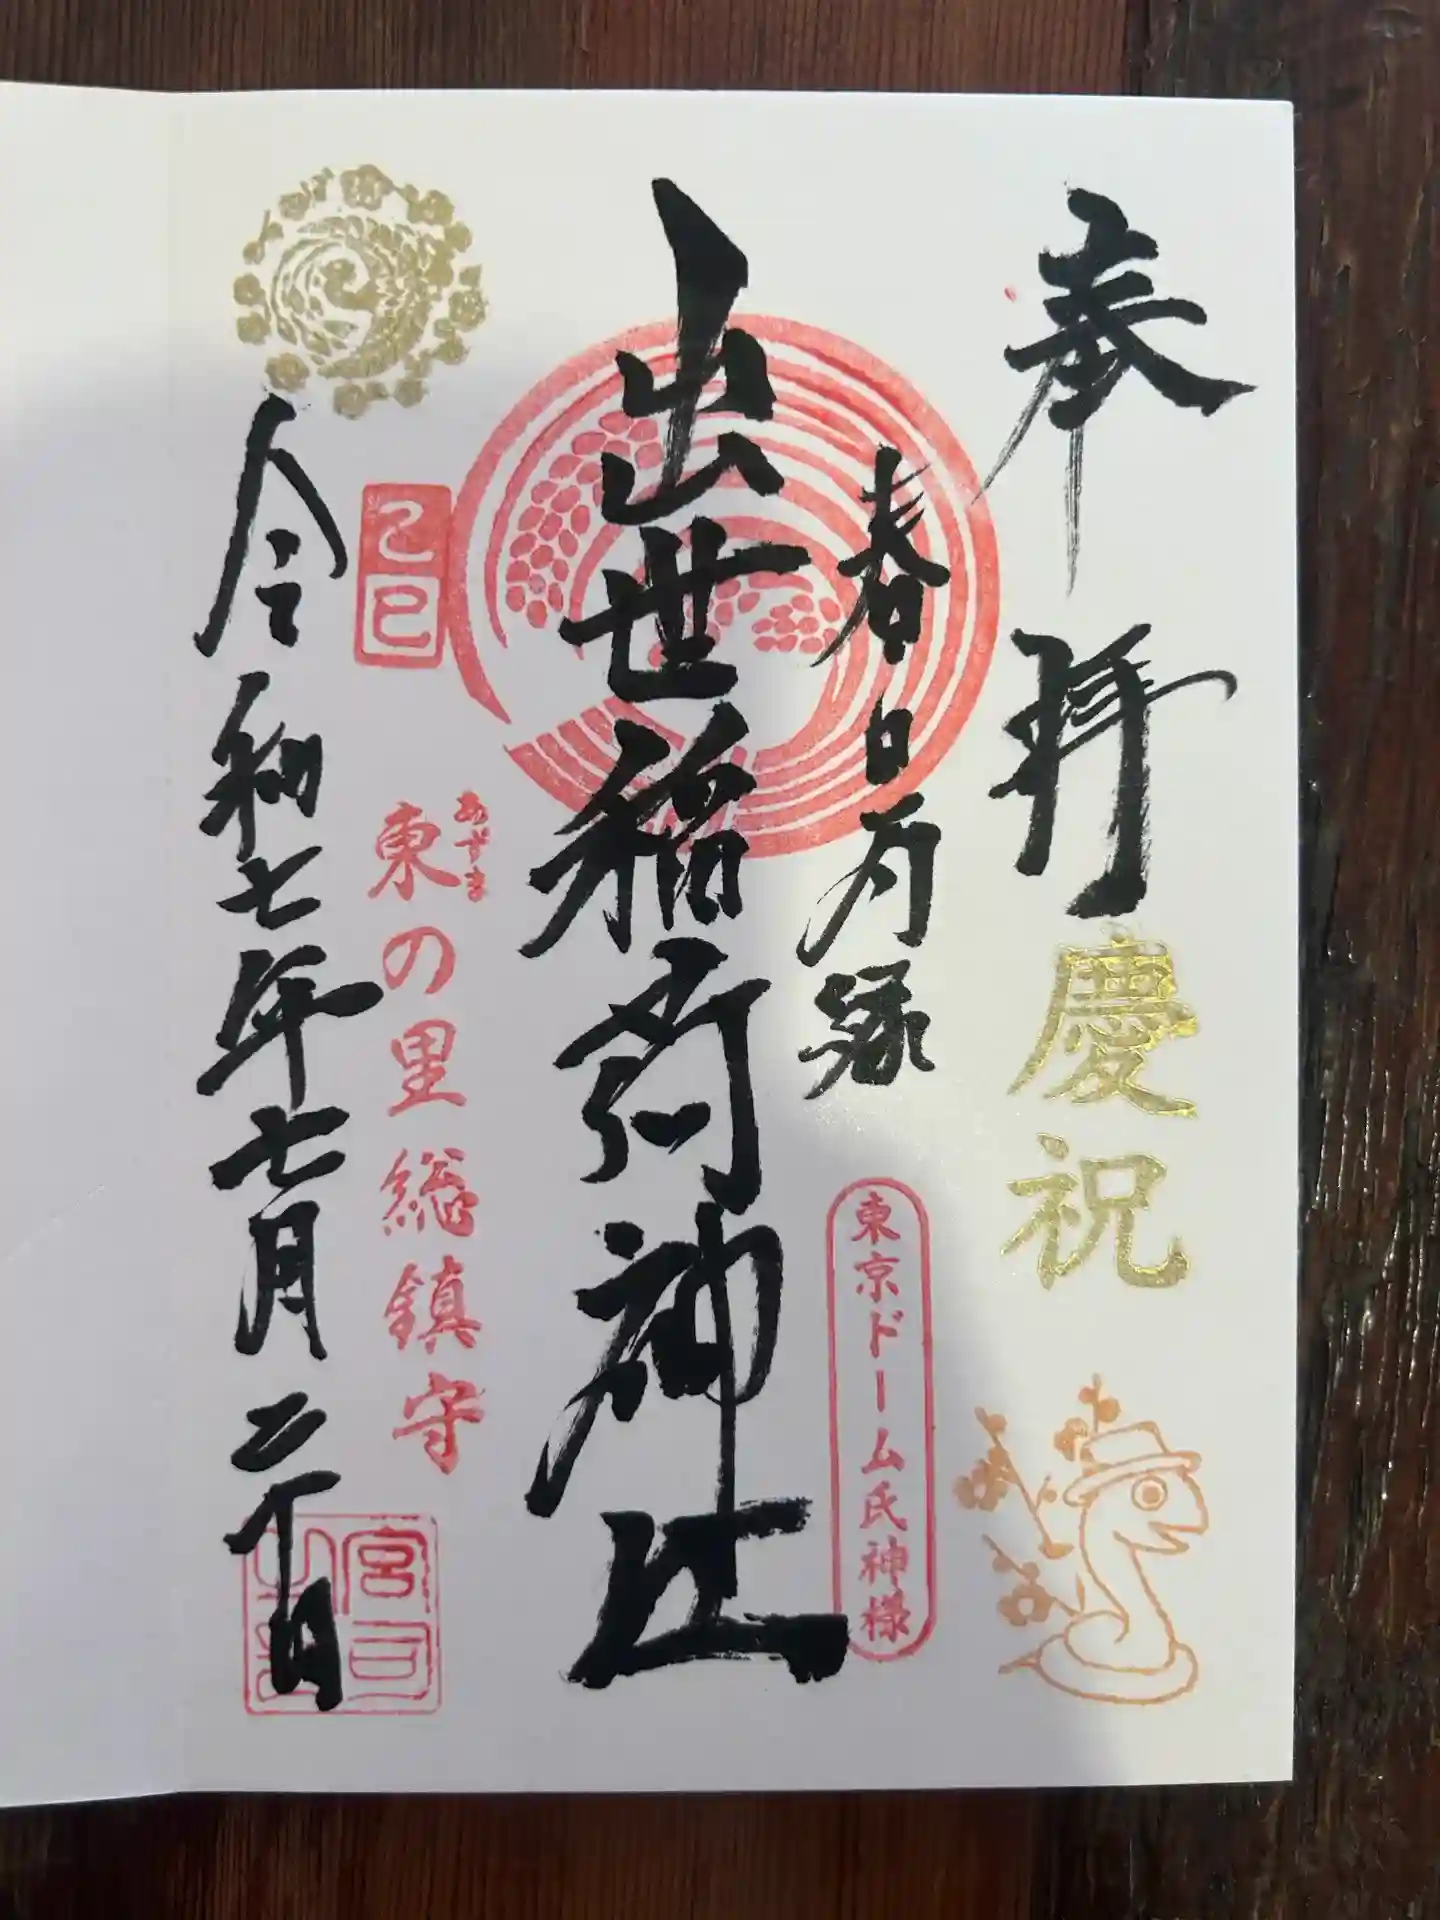 奉拝
慶祝
春日局縁
東京ドーム氏神様
出世稲荷神社
乙巳
あずま
東の里総鎮守
令和七年七月二十日
宮司